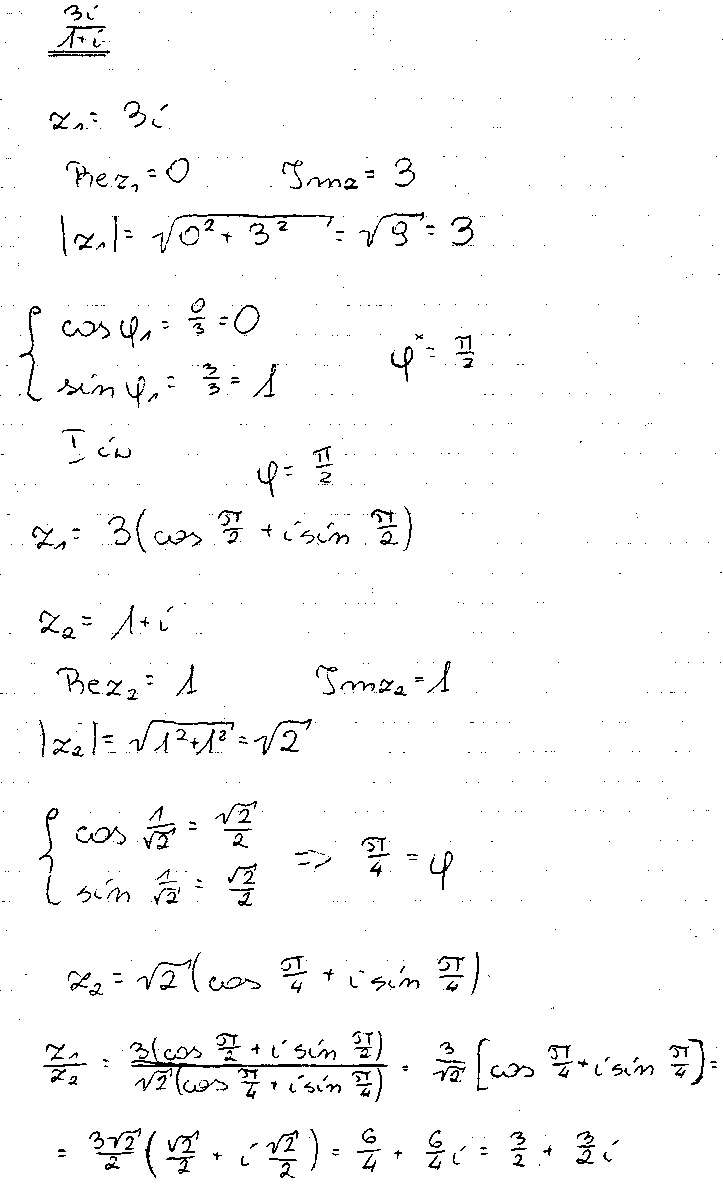 3i/1+i
z₁ = 3i
Re z₁ = 0 Im z = 3
|z₁| = √(0² + 3²) = √9 = 3
{ cos φ₁ = 0/3 = 0
sin φ₁ = 3/3 = 1 φ* = π/2
I ćw
φ = π/2
z₁ = 3(cos π/2 + i sin π/2)
z₂ = 1+i
Re z₂ = 1 Im z₂ = 1
|z₂| = √(1²+1²) = √2
{ cos 1/√2 = √2/2
sin 1/√2 = √2/2 => π/4 = φ
z₂ = √2(cos π/4 + i sin π/4)
z₁/z₂ = 3(cos π/2 + i sin π/2)/√2(cos π/4 + i sin π/4) = 3/√2 [cos π/4 + i sin π/4] =
= 3√2/2 (√2/2 + i √2/2) = 6/4 + 6/4 i = 3/2 + 3/2 i